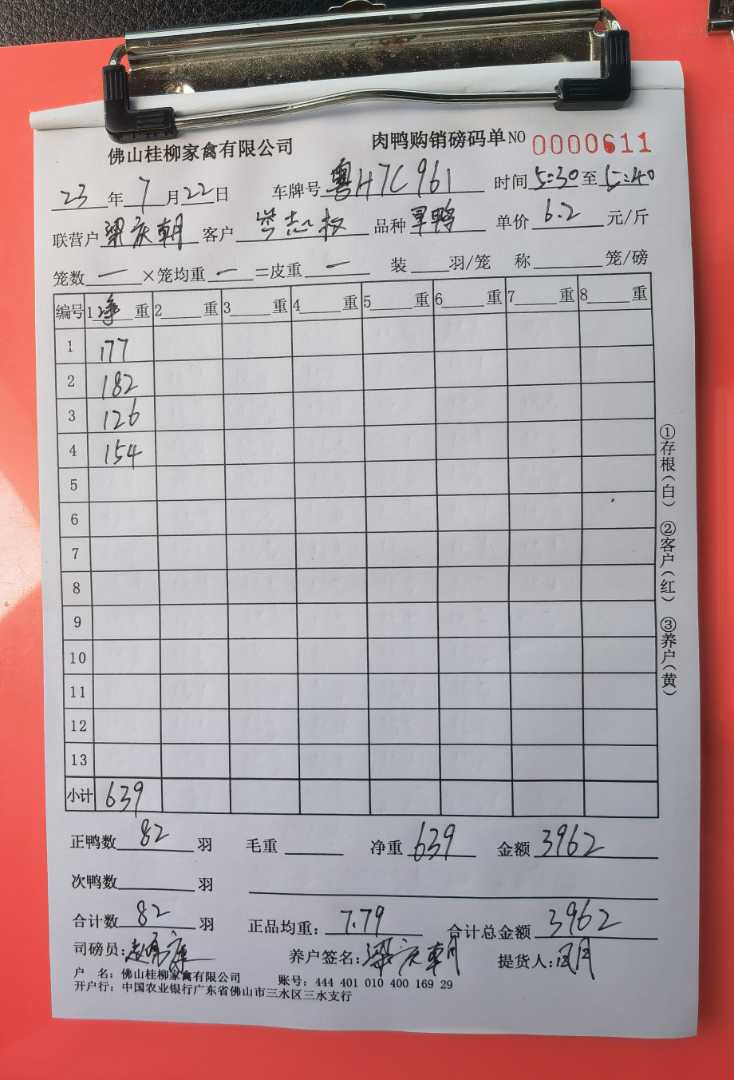 佛山桂柳家禽有限公司 肉鸭购销磅码单NO 0000611
23年7月22日 车牌号粤H7C961 时间5:30至5:40
联营户梁庆朝 客户志权 品种旱鸭 单价6.2元/斤
笼数一×笼均重一=皮重一 装羽/笼 称笼/磅
编号 1净重 2重 3重 4重 5重 6重 7重 8重
1 177
2 182
3 126
4 154
5
6
7
8
9
10
11
12
13
小计 639
①存根(白) ②客户(红) ③养户(黄)
正鸭数82羽 毛重 净重639 金额3962
次鸭数羽
合计数82羽 正品均重:7.79 合计总金额3962
司磅员: 养户签名:梁庆朝 提货人:
户 名:佛山桂柳家禽有限公司 账号:444 401 010 400 169 29
开户行:中国农业银行广东省佛山市三水区三水支行